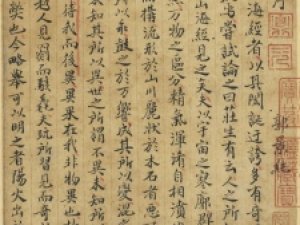 郭景純
海經者以其閎誕迂誇多有奇
嘗試論之曰莊生有云人之所
山海經見之矣夫以宇宙之寥廓
之區分精氣渾淆自相濆
流形於山川麗狀於木石者惡
以乖鼓之於響成其所以變混之
未知其所以異世之所謂不異未知其所
待我而後異異果在我非物異也
人見罽而駭毳夫翫所習見而奇
也今略舉可以明之者陽火出於